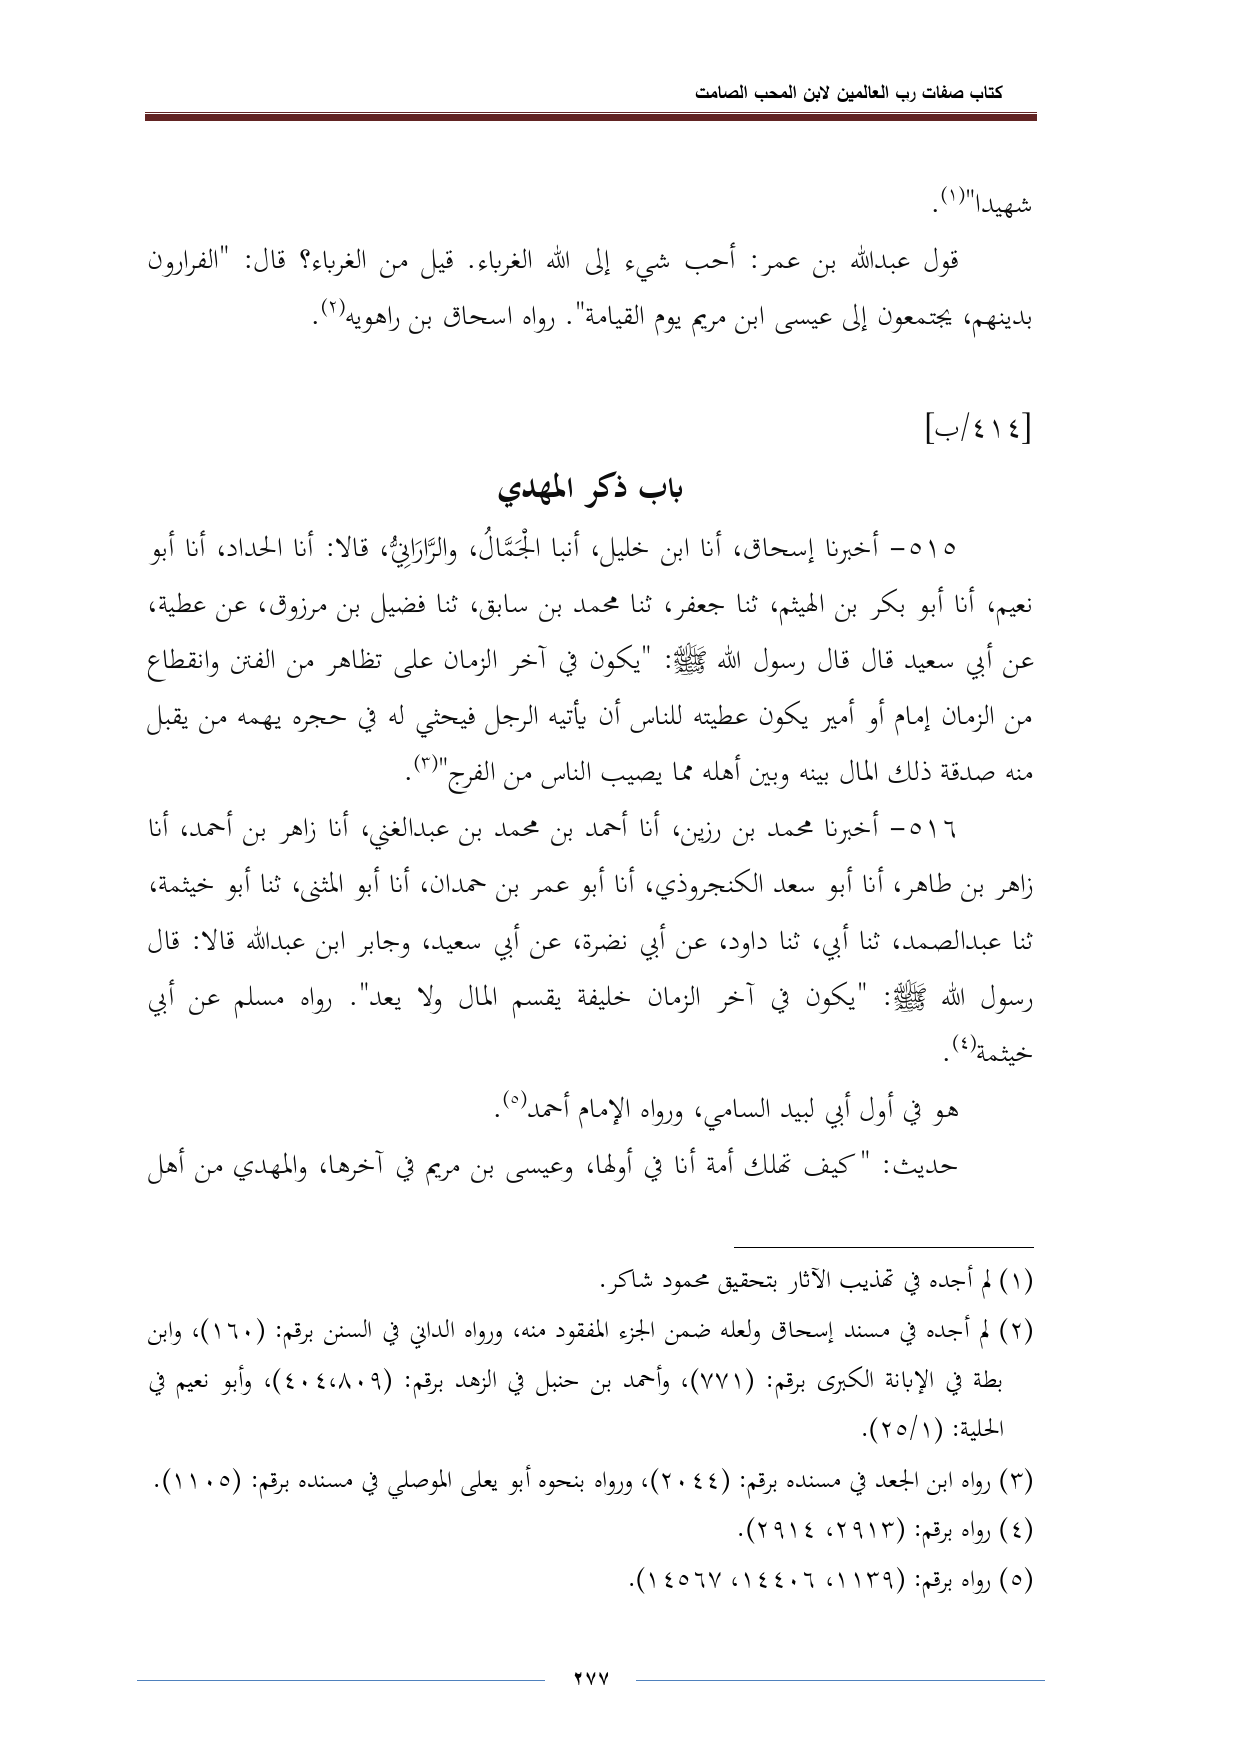 كتاب صفات رب العالمين لابن المحب الصامت
شهيدا"(١).
قول عبدالله بن عمر: أحب شيء إلى الله الغرباء. قيل من الغرباء؟ قال: "الفرارون
بدينهم، يجتمعون إلى عيسى ابن مريم يوم القيامة". رواه اسحاق بن راهويه(٢).
[٤١٤/ب]
باب ذكر المهدي
٥١٥- أخبرنا إسحاق، أنا ابن خليل، أنبا الْجَمَّالُ، والرَّارَانِيُّ، قالا: أنا الحداد، أنا أبو
نعيم، أنا أبو بكر بن الهيثم، ثنا جعفر، ثنا محمد بن سابق، ثنا فضيل بن مرزوق، عن عطية،
عن أبي سعيد قال قال رسول الله ﷺ: "يكون في آخر الزمان على تظاهر من الفتن وانقطاع
من الزمان إمام أو أمير يكون عطيته للناس أن يأتيه الرجل فيحثي له في حجره يهمه من يقبل
منه صدقة ذلك المال بينه وبين أهله مما يصيب الناس من الفرج"(٣).
٥١٦- أخبرنا محمد بن رزين، أنا أحمد بن محمد بن عبدالغني، أنا زاهر بن أحمد، أنا
زاهر بن طاهر، أنا أبو سعد الكنجروذي، أنا أبو عمر بن حمدان، أنا أبو المثنى، ثنا أبو خيثمة،
ثنا عبدالصمد، ثنا أبي، ثنا داود، عن أبي نضرة، عن أبي سعيد، وجابر ابن عبدالله قالا: قال
رسول الله ﷺ: "يكون في آخر الزمان خليفة يقسم المال ولا يعد". رواه مسلم عن أبي
خيثمة(٤).
هو في أول أبي لبيد السامي، ورواه الإمام أحمد(٥).
حديث: "كيف تهلك أمة أنا في أولها، وعيسى بن مريم في آخرها، والمهدي من أهل
(١) لم أجده في تهذيب الآثار بتحقيق محمود شاكر.
(٢) لم أجده في مسند إسحاق ولعله ضمن الجزء المفقود منه، ورواه الداني في السنن برقم: (١٦٠)، وابن
بطة في الإبانة الكبرى برقم: (٧٧١)، وأحمد بن حنبل في الزهد برقم: (٤٠٤،٨٠٩)، وأبو نعيم في
الحلية: (٢٥/١).
(٣) رواه ابن الجعد في مسنده برقم: (٢٠٤٤)، ورواه بنحوه أبو يعلى الموصلي في مسنده برقم: (١١٠٥).
(٤) رواه برقم: (٢٩١٣، ٢٩١٤).
(٥) رواه برقم: (١١٣٩، ١٤٤٠٦، ١٤٥٦٧).
٢٧٧